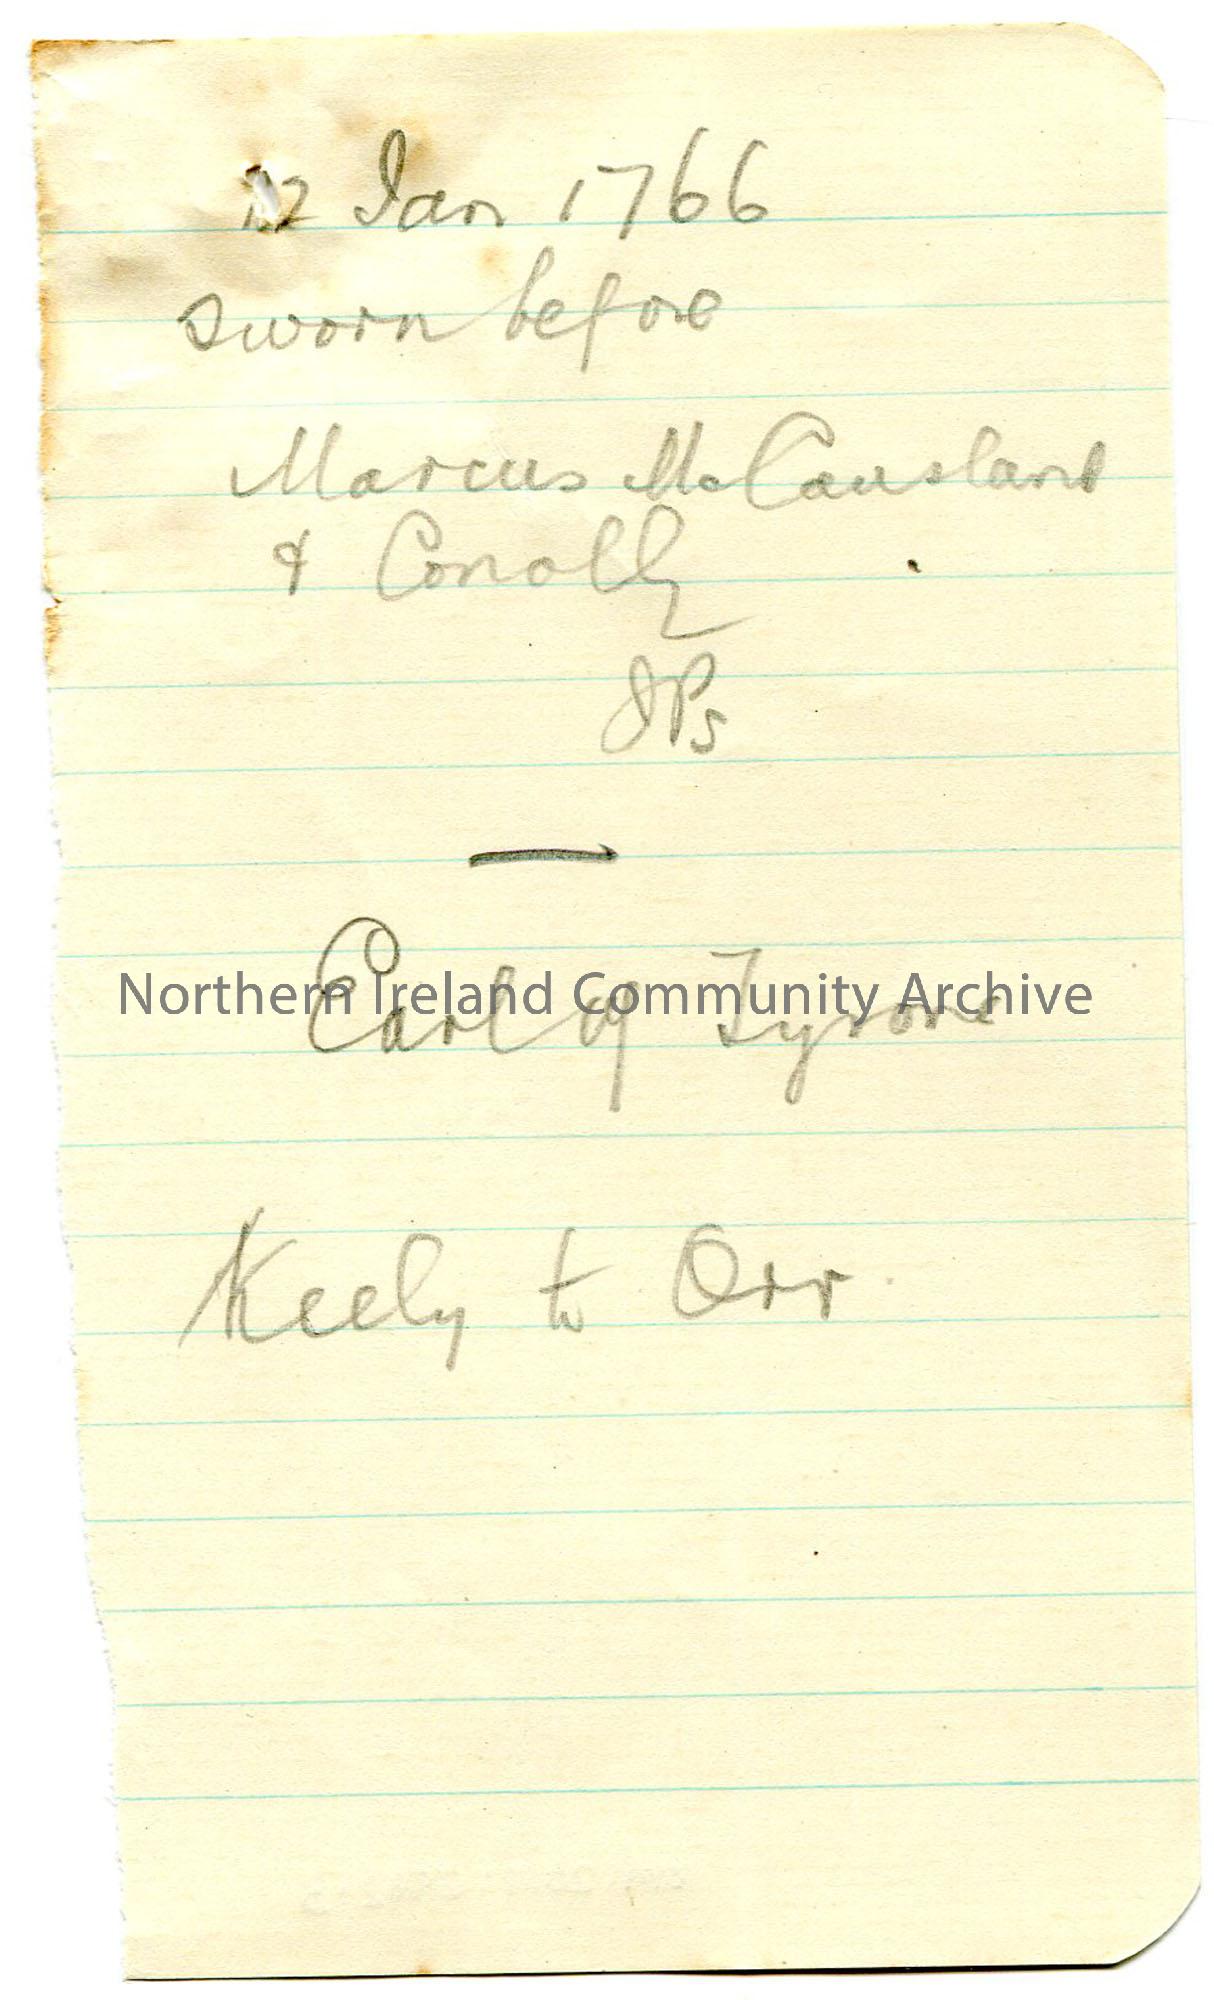 Jan 1766
sworn before
Marcus McCausland
& Conolly
JPs
Northern Ireland Community Archive
Earl of Tyrone
Keely to Orr